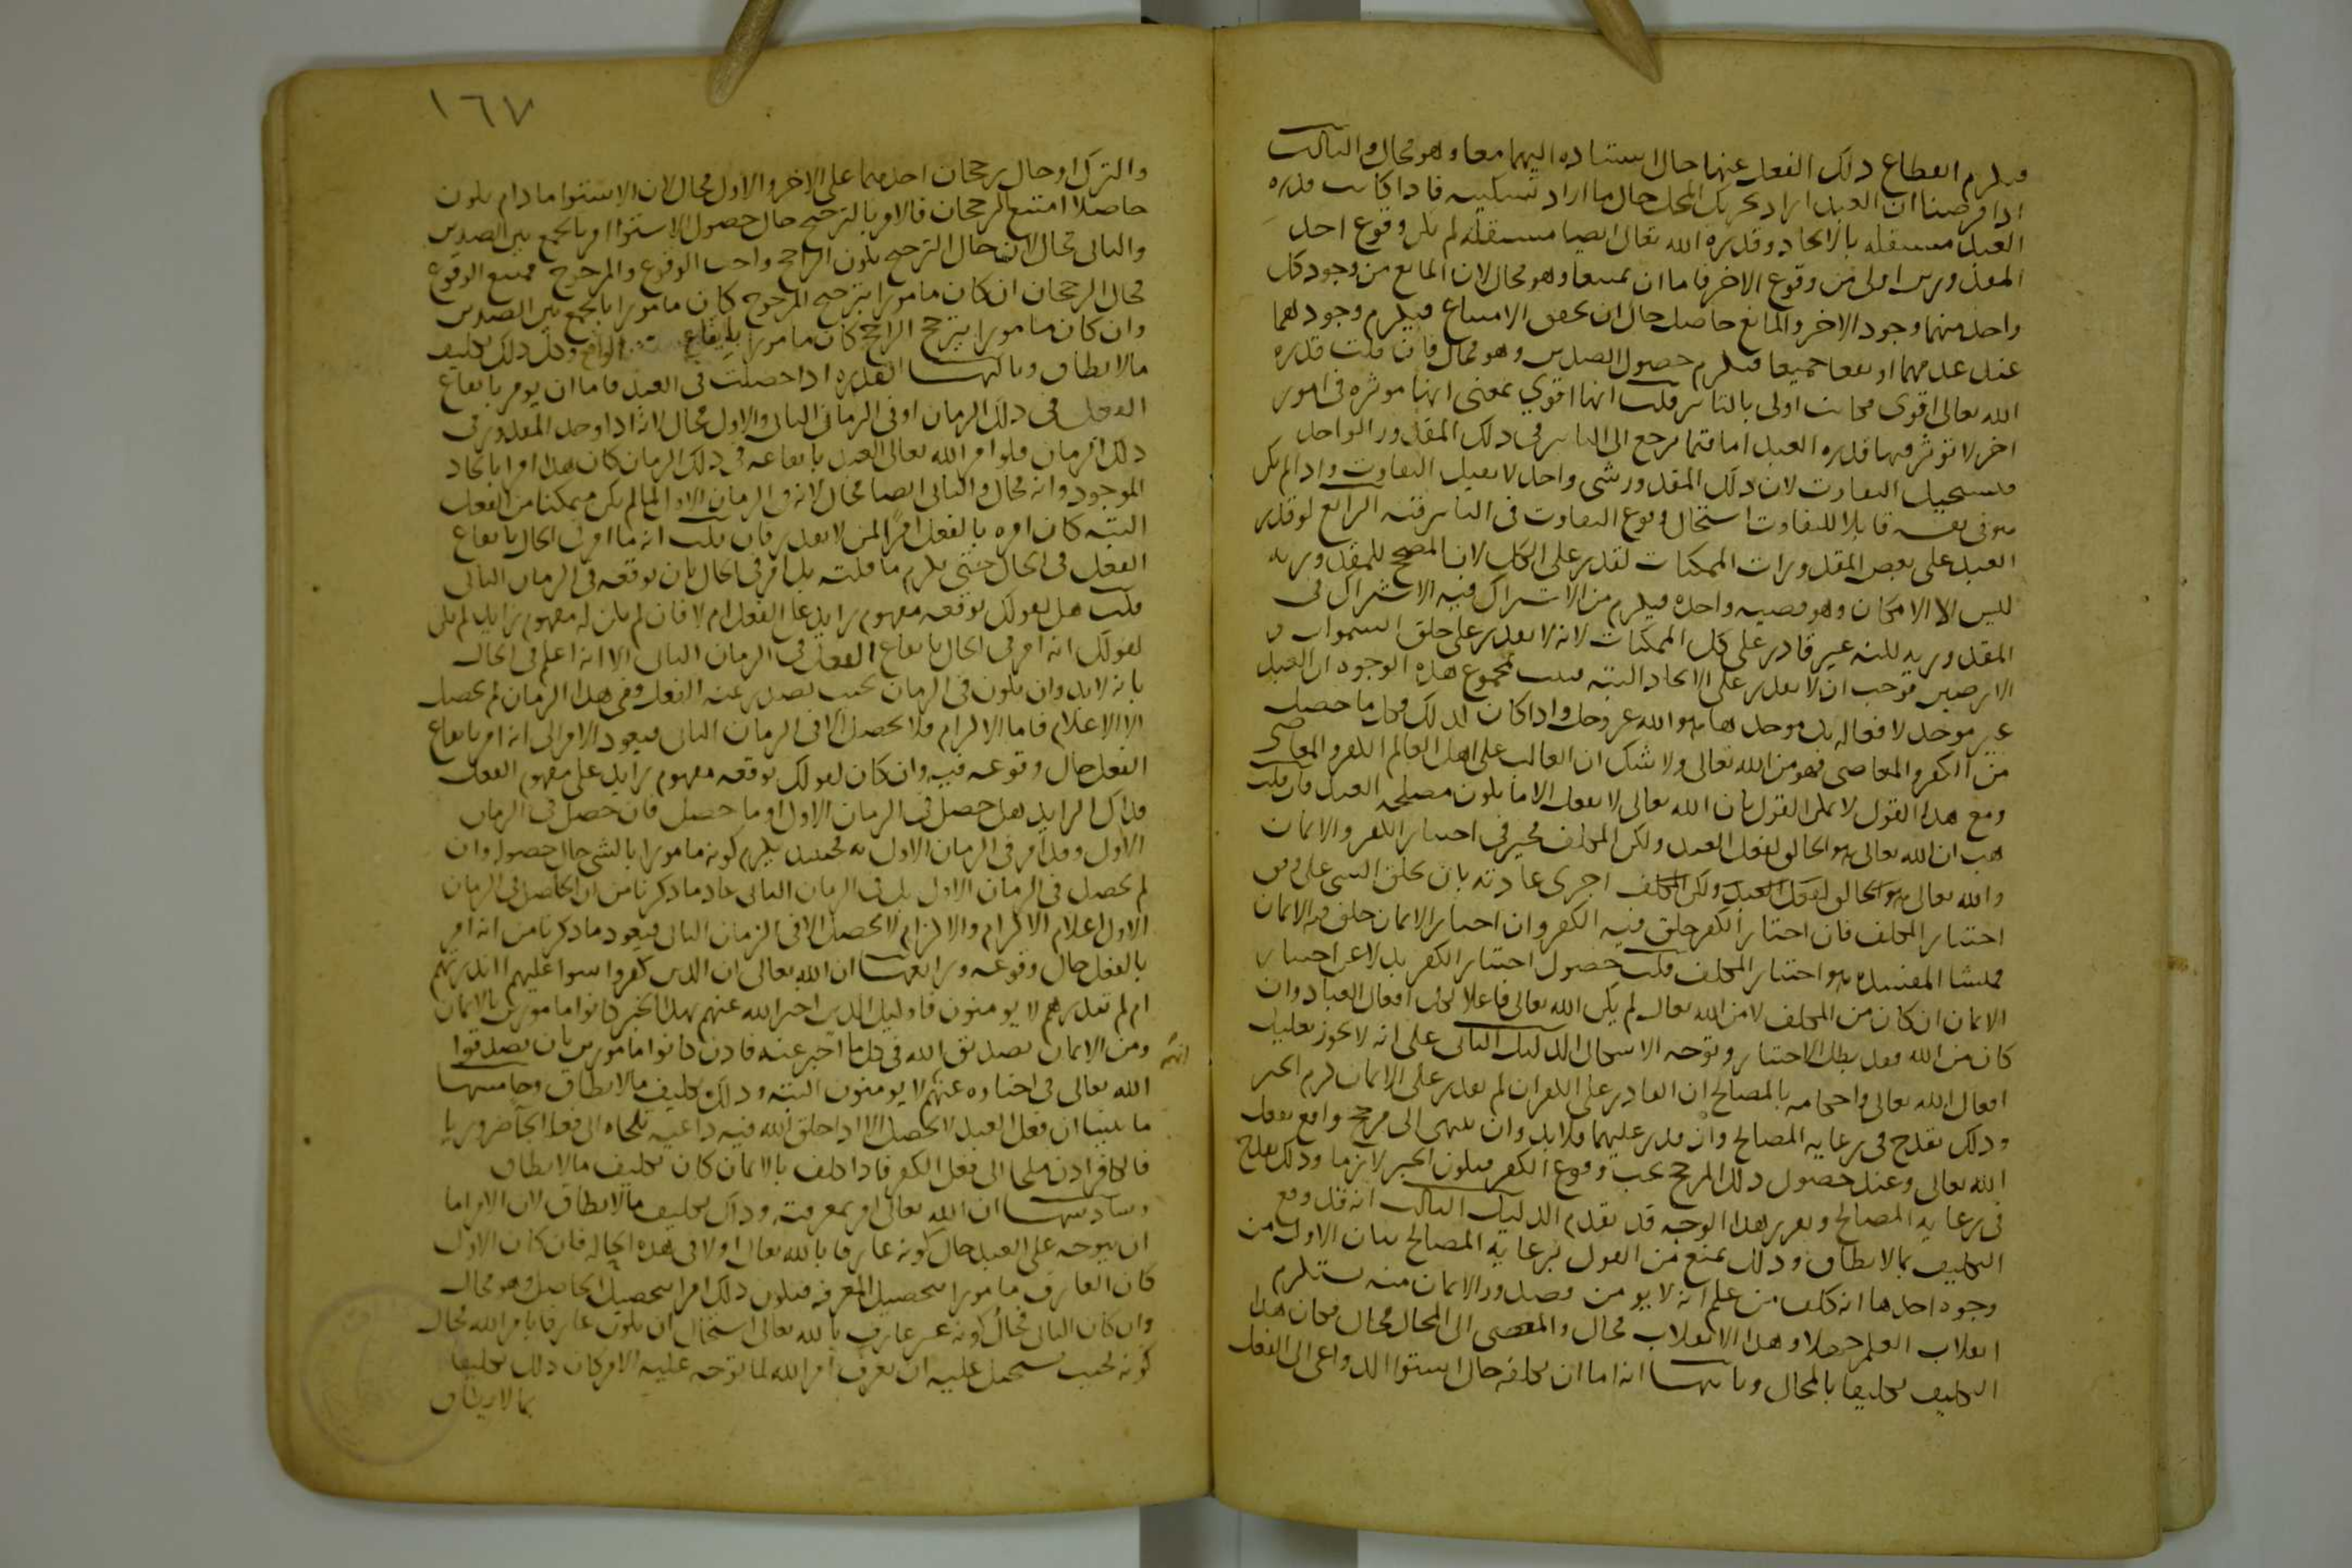 فيلزم انقطاع ذلك الفعل عنهما حال استناده اليهما معا وهو محال والثالث
اذا فرضنا ان العبد اراد تحريك المحل حال ما اراد تسكينه فاذا كانت قدرة
العبد مستقلة بالايجاد وقدرة الله تعالى ايضا مستقلة لم يكن وقوع احد
المقدورين اولى من وقوع الاخر فاما ان يمتنعا وهو محال لان المانع من وجود كل
واحد منهما وجود الاخر والمانع حاصل حال ان تحقق الامتناع فيلزم وجودهما
عند عدمهما او يقعا جميعا فيلزم حصول الضدين وهو محال فان قلت قدرة
الله تعالى اقوى فكانت اولى بالتاثير قلت انها اقوي بمعنى انها موثرة في امور
اخر لا توثر فيها قدرة العبد اما فيما يرجع الى التاثير في ذلك المقدور الواحد
فيستحيل التفاوت لان ذلك المقدور شي واحد لا يقبل التفاوت واذا لم يكن
هو في نفسه قابلا للتفاوت استحال وقوع التفاوت في التاثير فيه الرابع لو قدر
العبد على بعض المقدورات الممكنات لقدر على الكل لان المصحح للمقدورية
ليس الا الامكان وهو قضية واحدة فيلزم من الاشتراك فيه الاشتراك في
المقدورية لكنه غير قادر على كل الممكنات لانه لا يقدر على خلق السموات و
الارضين فوجب ان لا يقدر على الايجاد البتة فثبت بمجموع هذه الوجوه ان العبد
غير موجد لافعاله بل موجدها هو الله عز وجل واذا كان كذلك فكل ما حصل
من الكفر والمعاصي فهو من الله تعالى ولا شك ان الغالب على اهل العالم الكفر والمعاصي
ومع هذا القول لا يمكن القول بان الله تعالى لا يفعل الا ما يكون مصلحة العبد فان قلت
هب ان الله تعالى هو الخالق لفعل العبد ولكن المكلف مخير في اختيار الكفر والايمان
والله تعالى هو الخالق لفعل العبد ولكن المكلف اجرى عادته بان يخلق الشي على وفق
اختيار المكلف فان اختار الكفر خلق فيه الكفر وان اختار الايمان خلق فيه الايمان
فمنشا المفسدة هو اختيار المكلف قلت حصول اختيار الكفر بدلا عن اختيار
الايمان ان كان من المكلف لا من الله تعالى لم يكن الله تعالى فاعلا لكل افعال العباد وان
كان من الله فقد بطل الاختيار وتوجه الاشكال الدليل الثاني على انه لا يجوز تعليل
افعال الله تعالى واحكامه بالمصالح ان القادر على الكفر ان لم يقدر على الايمان لزم الجبر
وذلك يقدح في رعاية المصالح وان قدر عليهما فلا بد وان ينتهي الى مرجح واقع بفعل
الله تعالى وعند حصول ذلك المرجح يجب وقوع الكفر فيكون الجبر لازما وذلك يقدح
في رعاية المصالح وتقرير هذا الوجه قد تقدم الدليل الثالث انه قد وقع
التكليف بما لا يطاق وذلك يمنع من القول برعاية المصالح بيان الاول من
وجوه احدها انه كلف من علم انه لا يومن وصدور الايمان منه يستلزم
انقلاب العلم جهلا وهذا الانقلاب محال والمفضي الى المحال محال فكان هذا
التكليف تكليفا بالمحال وثانيها انه اما ان يكلفه حال استوا الدواعي الى الفعل
١٦٧
والترك او حال رجحان احدهما على الاخر والاول محال لان الاستوا ما دام يكون
حاصلا امتنع الرجحان فالامر بالترجيح حال حصول الاستوا امر بالجمع بين الضدين
والثاني محال لان حال الترجيح يكون الراجح واجب الوقوع والمرجوح ممتنع الوقوع
فحال الرجحان ان كان مامورا بترجيح المرجوح كان مامورا بالجمع بين الضدين
وان كان مامورا بترجيح الراجح كان مامورا بايقاع الواقع وكل ذلك تكليف
ما لا يطاق وثالثها القدرة اذا حصلت في العبد فاما ان يومر بايقاع
الفعل في ذلك الزمان او في الزمان الثاني والاول محال لانه اذا وجد المقدور في
ذلك الزمان فلو امر الله تعالى العبد بايقاعه في ذلك الزمان كان هذا امرا بايجاد
الموجود وانه محال والثاني ايضا محال لانه في الزمان الاول لما لم يكن متمكنا من الفعل
البتة كان امره بالفعل امرا لمن لا يقدر فان قلت انه ما امر في الحال بايقاع
الفعل في الحال حتى يلزم ما قلته بل امر في الحال بان يوقعه في الزمان الثاني
قلت هل لقولك يوقعه مفهوم زايد على الفعل ام لا فان لم يكن له مفهوم زايد لم يكن
لقولك انه امر في الحال بايقاع الفعل في الزمان الثاني الا انه اعلم في الحال
بانه لا بد وان يكون في الزمان بحيث يصدر عنه الفعل وفي هذا الزمان لم يحصل
الا الاعلام فاما الالزام فلا يحصل الا في الزمان الثاني فيعود الامر الى انه امر بايقاع
الفعل حال وقوعه فيه وان كان لقولك يوقعه مفهوم زايد على مفهوم الفعل
فذاك الزايد هل حصل في الزمان الاول او ما حصل فان حصل في الزمان
الاول وقد امر في الزمان الاول به فحينئذ يلزم كونه مامورا بالشي حال حصوله وان
لم يحصل في الزمان الاول بل في الزمان الثاني عاد ما ذكرنا من ان الحاصل في الزمان
الاول اعلام الالزام والالزام لا يحصل الا في الزمان الثاني فيعود ما ذكرنا من انه امر
بالفعل حال وقوعه ورابعها ان الله تعالى ان الذين كفروا سوا عليهم اانذرتهم
ام لم تنذرهم لا يومنون فاوليك الذين اخبر الله عنهم بهذا الخبر كانوا مامورين بالايمان
ومن الايمان تصديق الله في كل ما اخبر عنه فاذن كانوا مامورين بان يصدقوا
انهم
الله تعالى في اخباره عنهم لا يومنون البتة وذلك تكليف ما لا يطاق وخامسها
ما بينا ان فعل العبد لا يحصل الا اذا خلق الله فيه داعية تلجاه الى فعل الجآ ضروريا
فالكافر اذن ملجا الى فعل الكفر فاذا كلف بالايمان كان تكليف ما لا يطاق
وسادسها ان الله تعالى امر بمعرفته وذلك تكليف ما لا يطاق لان الامر اما
ان يتوجه على العبد حال كونه عارفا بالله تعالى اولا في هذه الحالة فان كان الاول
كان العارف مامورا بتحصيل المعرفة فيكون ذلك امرا بتحصيل الحاصل وهو محال
وان كان الثاني فحال كونه غير عارف بالله تعالى استحال ان يكون عارفا بامر الله فحال
كونه بحيث يستحيل عليه ان يعرف امر الله لما توجه عليه الامر كان ذلك تكليفا
بما لا يطاق